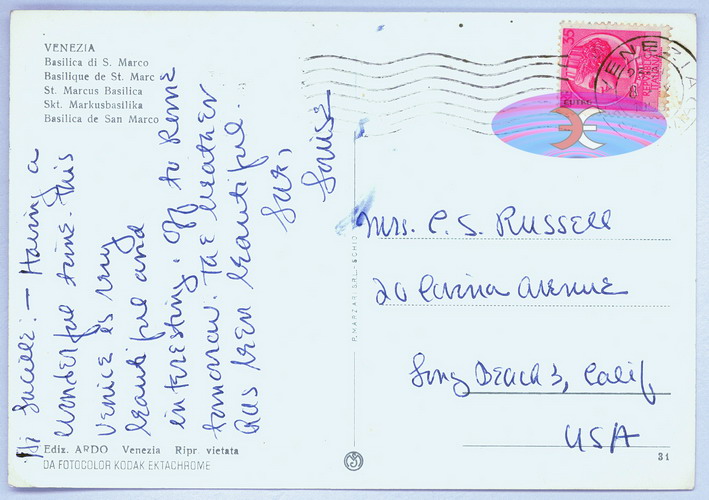 VENEZIA
Basilica di S. Marco
Basilique de St. Marc
St. Marcus Basilica
Skt. Markusbasilika
Basilica de San Marco
Hi Lucille: - Having a
wonderful time. This
Venice is very
beautiful and
interesting. Off to Rome
tomorrow. The weather
has been beautiful.
Luv,
Louise
Mrs. C. S. Russell
20 Corina Avenue
Long Beach 3, Calif
USA
Ediz. ARDO Venezia Ripr. vietata
DA FOTOCOLOR KODAK EKTACHROME
31
35
VENEZIA